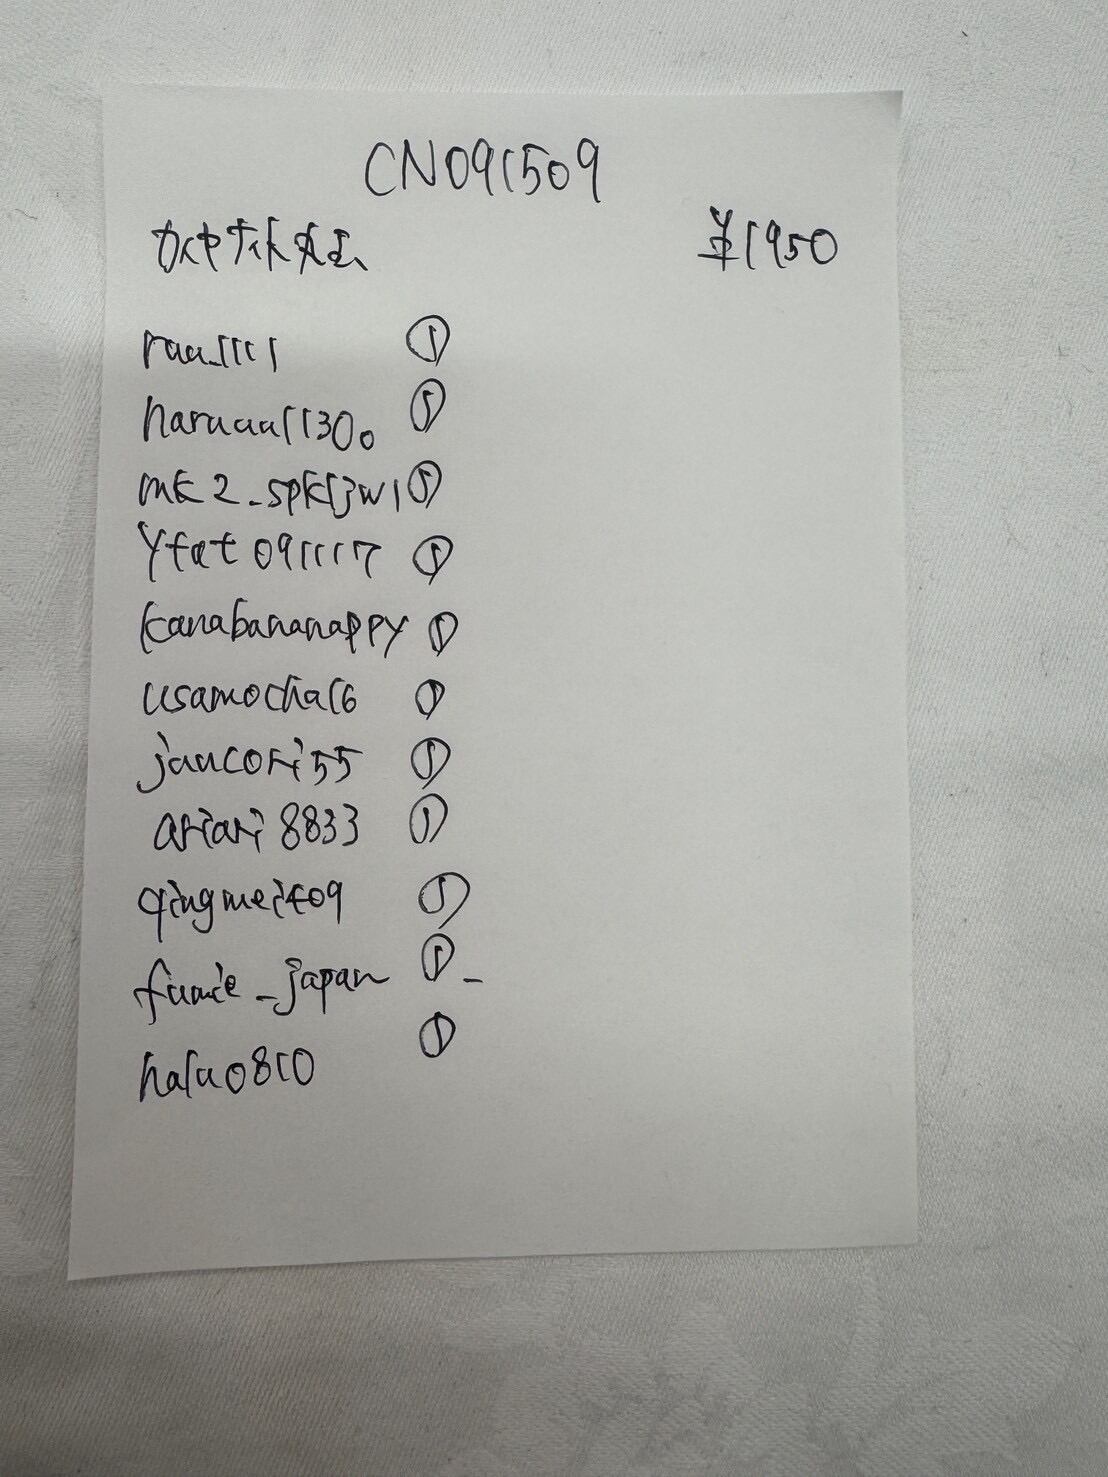 CN091509
¥1950
raa_1111 ①
haruaa11300 ①
mk2_spkt3w1 ①
Yfat091117 ①
kanabananappy ①
usamocha16 ①
jancori55 ①
ariari8833 ①
qingmei409 ①
fumie_japan ① -
halu0810 ①